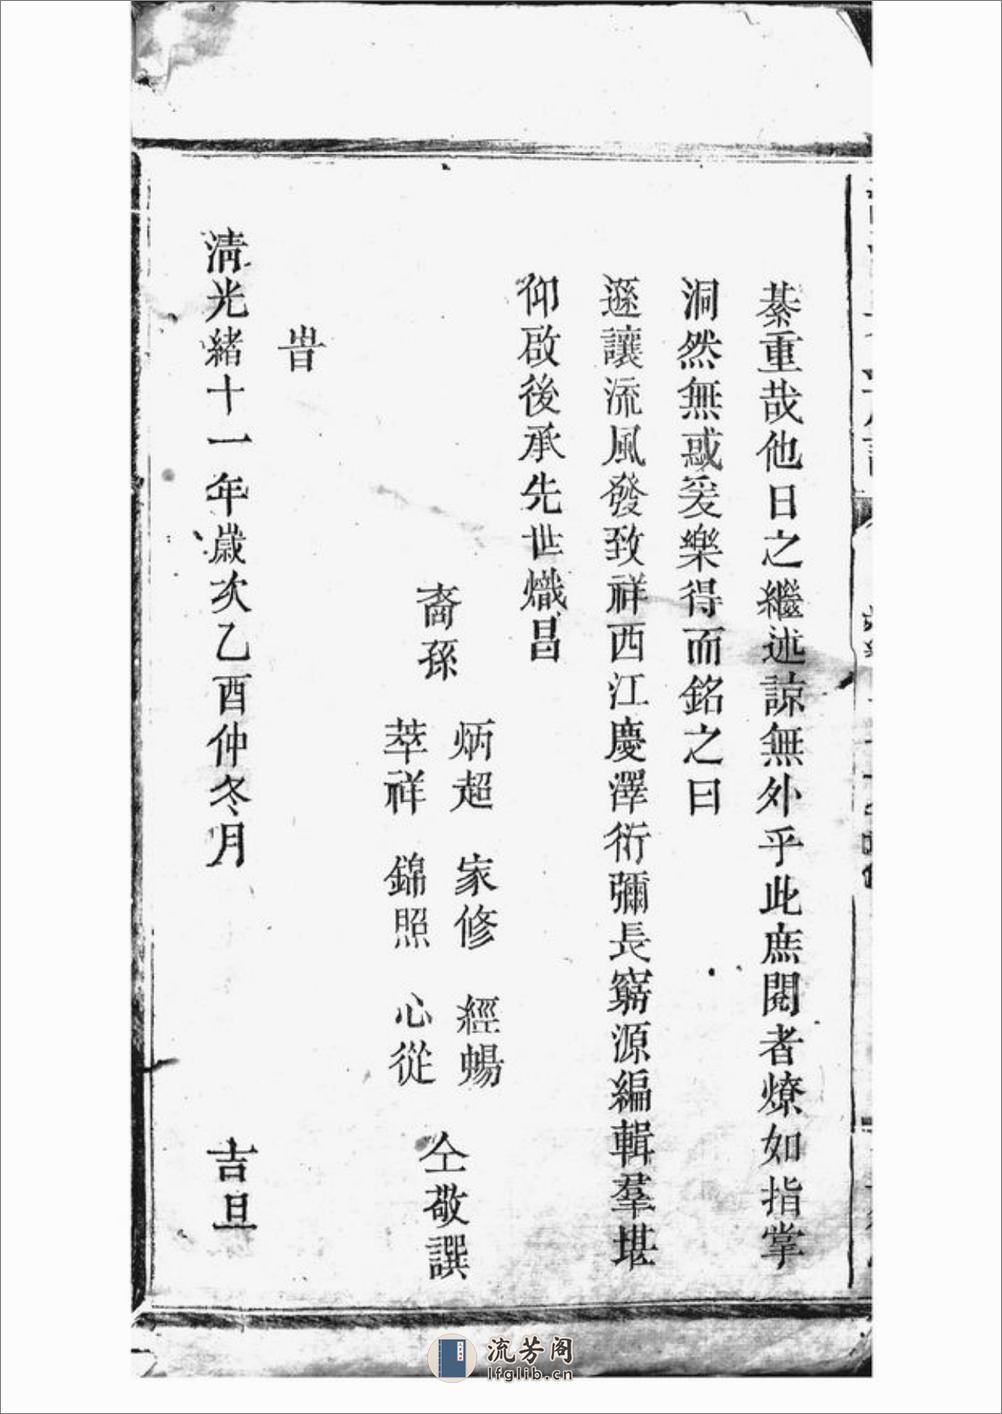 綦重哉他日之繼述諒無外乎此庶閱者燎如指掌
洞然無惑爰樂得而銘之曰
遜讓流風發致祥西江慶澤衍彌長窮源編輯羣堪
仰啟後承先世熾昌
裔孫
炳超 家修 經暢
萃祥 錦照 心從
仝敬譔
旹
淸光緒十一年歲次乙酉仲冬月 吉旦
流芳阁
lfglib.cn